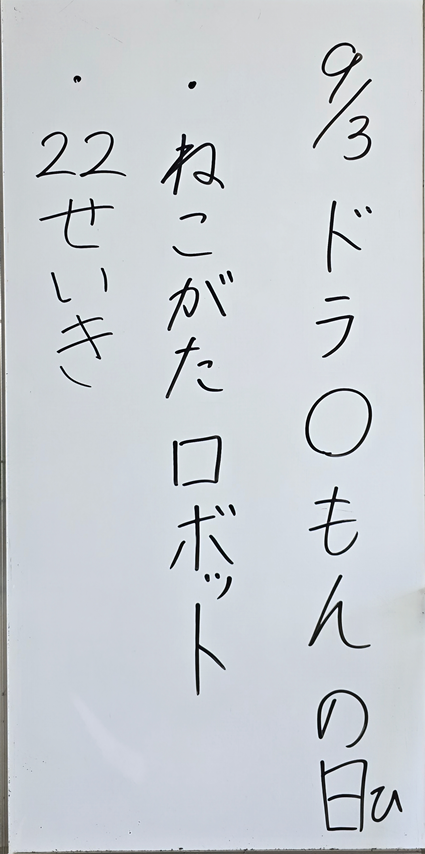 9/3 ドラ〇もんの日ひ
・ねこがたロボット
・22せいき